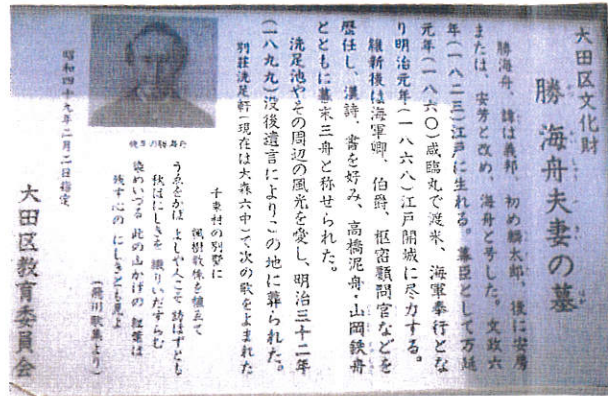 大田区文化財
勝海舟夫妻の墓
勝海舟、諱は義邦、初め麟太郎、後に安房
または、安芳と改め、海舟と号した。文政六
年(一八二三)江戸に生れる。幕臣として万延
元年(一八六〇)咸臨丸で渡米、海軍奉行とな
り明治元年(一八六八)江戸開城に尽力する。
維新後は海軍卿、伯爵、枢密顧問官などを
歴任し、漢詩、書を好み、高橋泥舟・山岡鉄舟
とともに幕末三舟と称せられた。
洗足池やその周辺の風光を愛し、明治三十二年
(一八九九)没後遺言によりこの地に葬られた。
別荘洗足軒(現在は大森六中)で次の歌をよまれた
千束村の別墅に
楓樹数株を植ゑて
うゑをかば よしや人こそ訪はずとも
秋はにしきを 織りいだすらむ
染めいづる 此の山かげの 紅葉は
残す心の にしきとも見よ
(歌集より)
昭和四十九年二月二日指定
大田区教育委員会